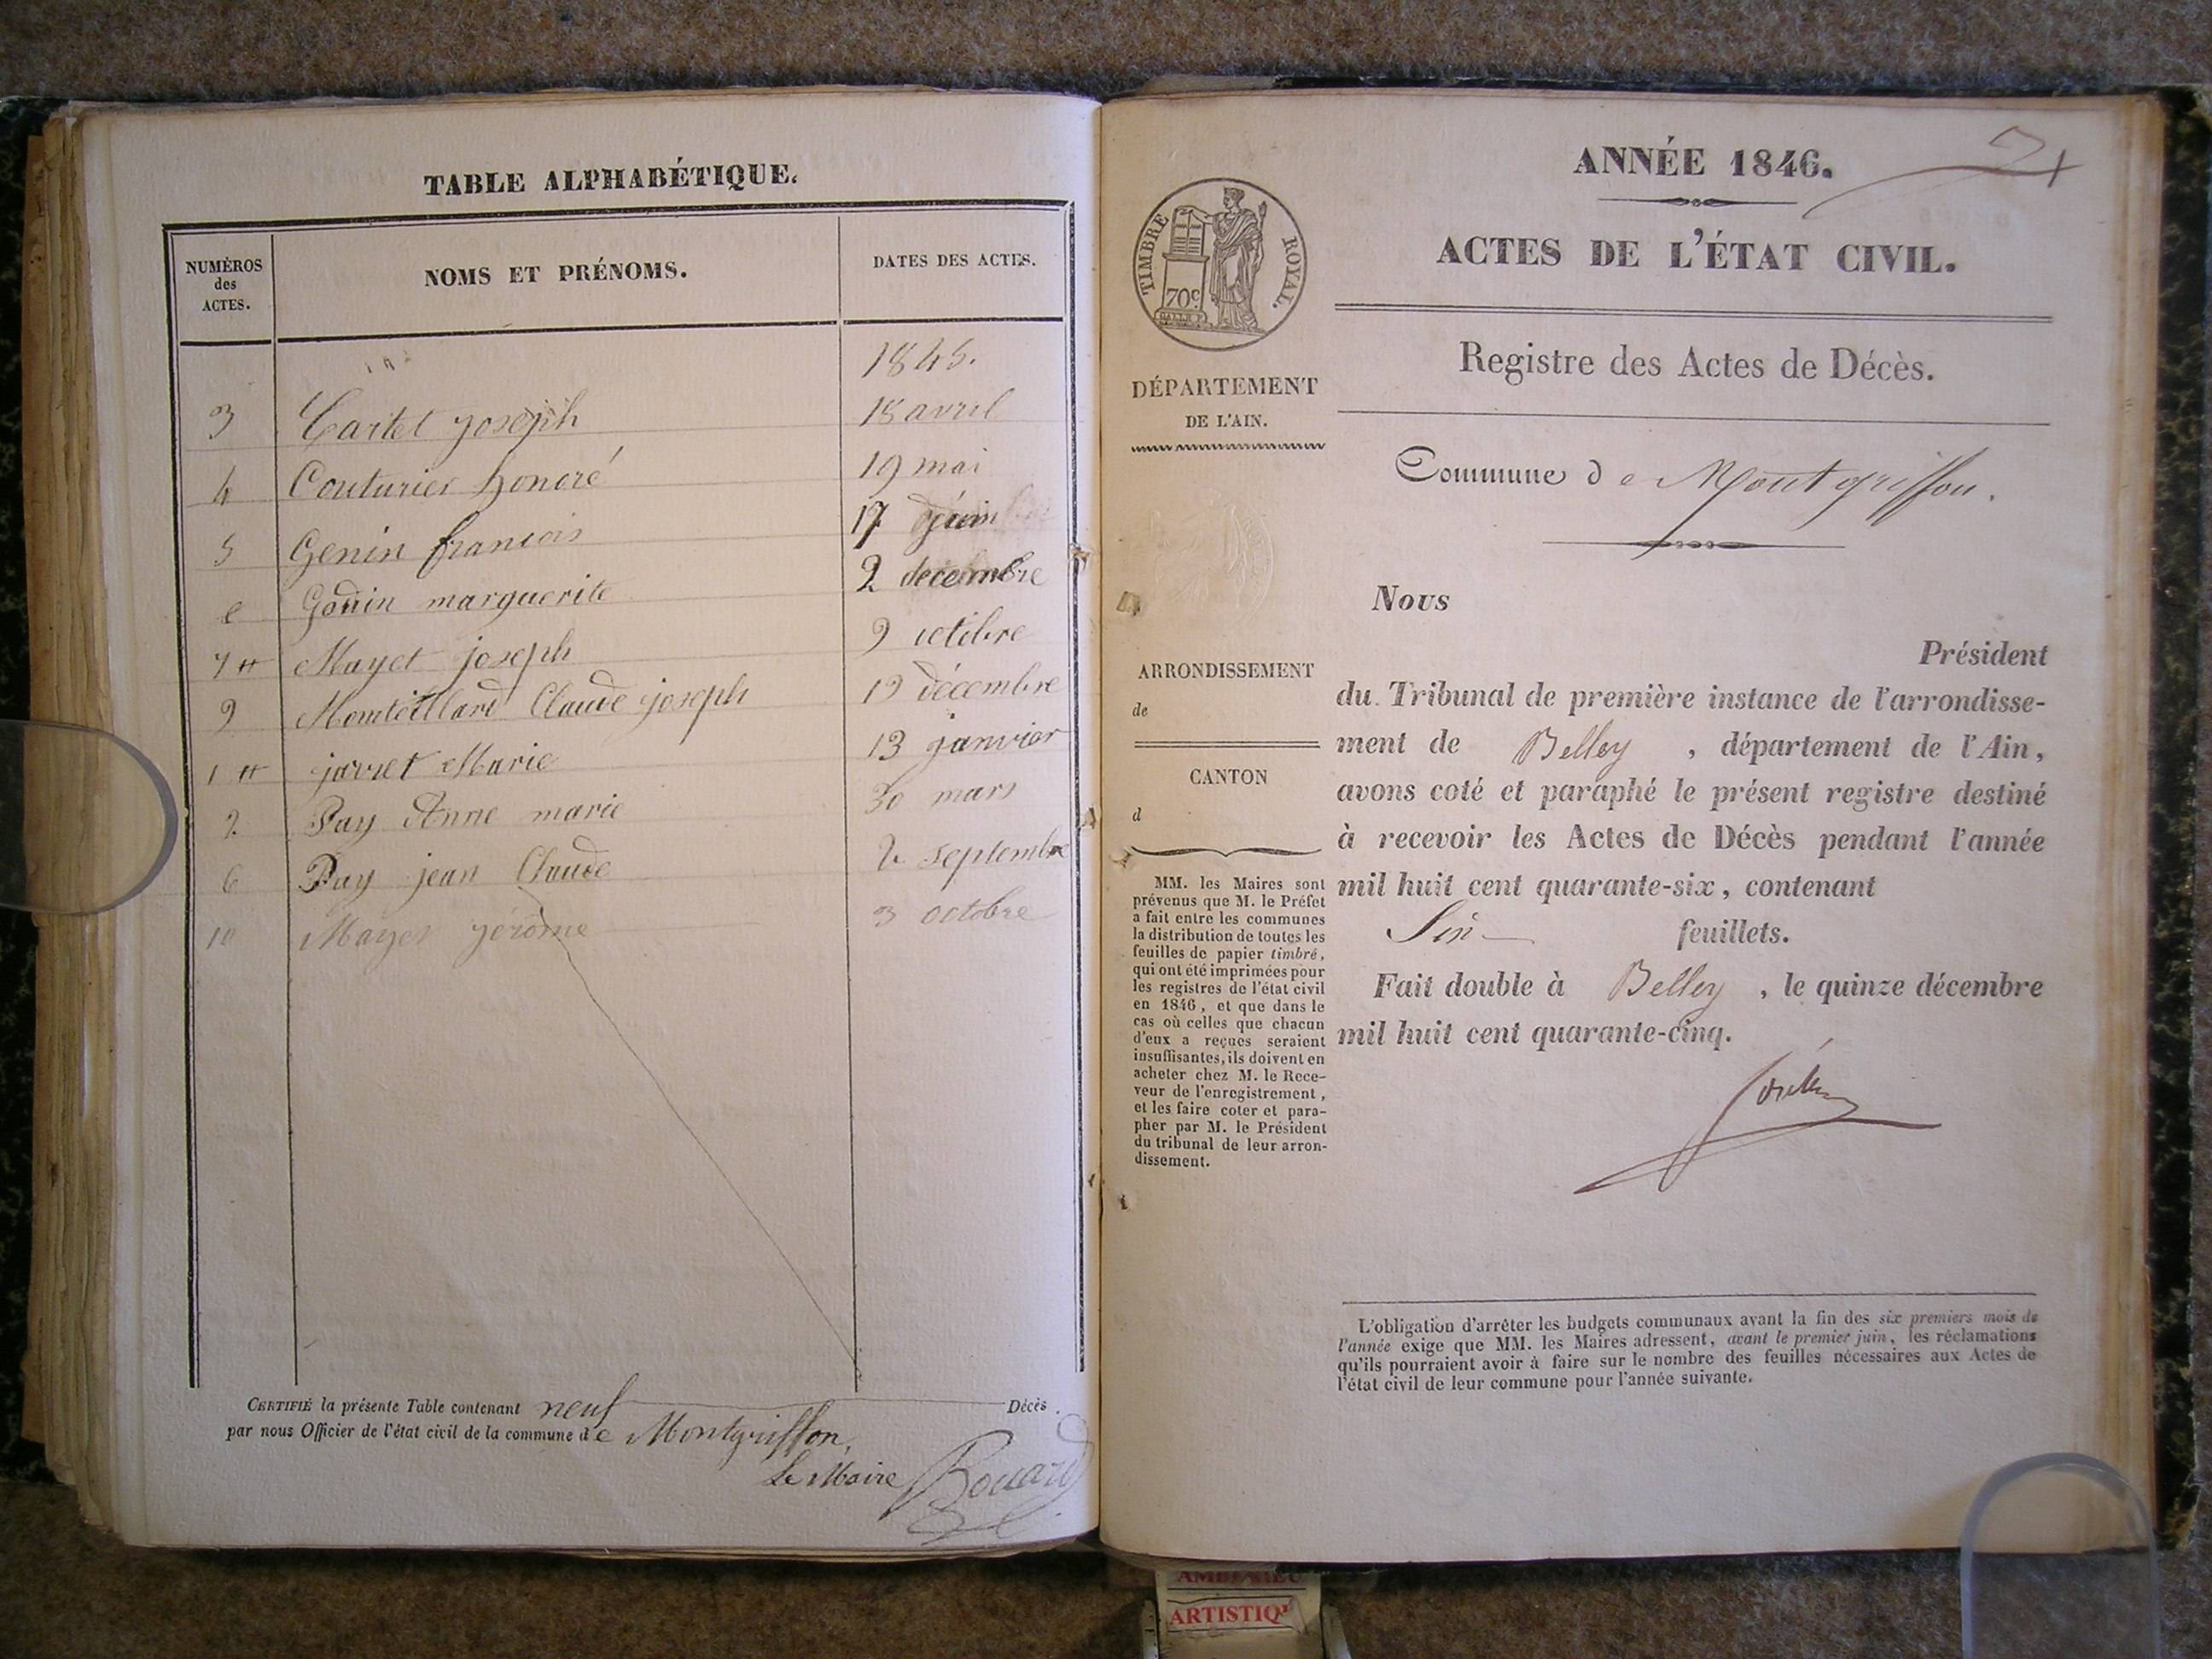 TABLE ALPHABÉTIQUE.
NUMÉROS des ACTES.
NOMS ET PRÉNOMS.
DATES DES ACTES.
1845.
3 Cartet joseph 18 avril
4 Couturier honoré 19 mai
5 Genin francois 17 juin
Gonin marguerite 2 decembre
7 Mayet joseph 9 octobre
9 Claude joseph 19 décembre
1 javret Marie 13 janvier
2 Pay Anne marie 30 mars
6 Pay jean Claude 2 septembre
10 Mayet jérôme 3 octobre
CERTIFIÉ la présente Table contenant neuf Décès
par nous Officier de l'état civil de la commune de Montgriffon,
Le Maire Bouard
ANNÉE 1846.
ACTES DE L'ÉTAT CIVIL.
TIMBRE ROYAL.
70c
Registre des Actes de Décès.
DÉPARTEMENT
DE L'AIN.
Commune de Montgriffon.
ARRONDISSEMENT
de
CANTON
d
MM. les Maires sont
prévenus que M. le Préfet
a fait entre les communes
la distribution de toutes les
feuilles de papier timbré,
qui ont été imprimées pour
les registres de l'état civil
en 1846, et que dans le
cas où celles que chacun
d'eux a reçues seraient
insuffisantes, ils doivent en
acheter chez M. le Rece-
veur de l'enregistrement,
et les faire coter et para-
pher par M. le Président
du tribunal de leur arron-
dissement.
Nous
Président
du Tribunal de première instance de l'arrondisse-
ment de Belley, département de l'Ain,
avons coté et paraphé le présent registre destiné
à recevoir les Actes de Décès pendant l'année
mil huit cent quarante-six, contenant
Six feuillets.
Fait double à Belley, le quinze décembre
mil huit cent quarante-cinq.
L'obligation d'arrêter les budgets communaux avant la fin des six premiers mois de
l'année exige que MM. les Maires adressent, avant le premier juin, les réclamations
qu'ils pourraient avoir à faire sur le nombre des feuilles nécessaires aux Actes de
l'état civil de leur commune pour l'année suivante.
ARTISTIQ